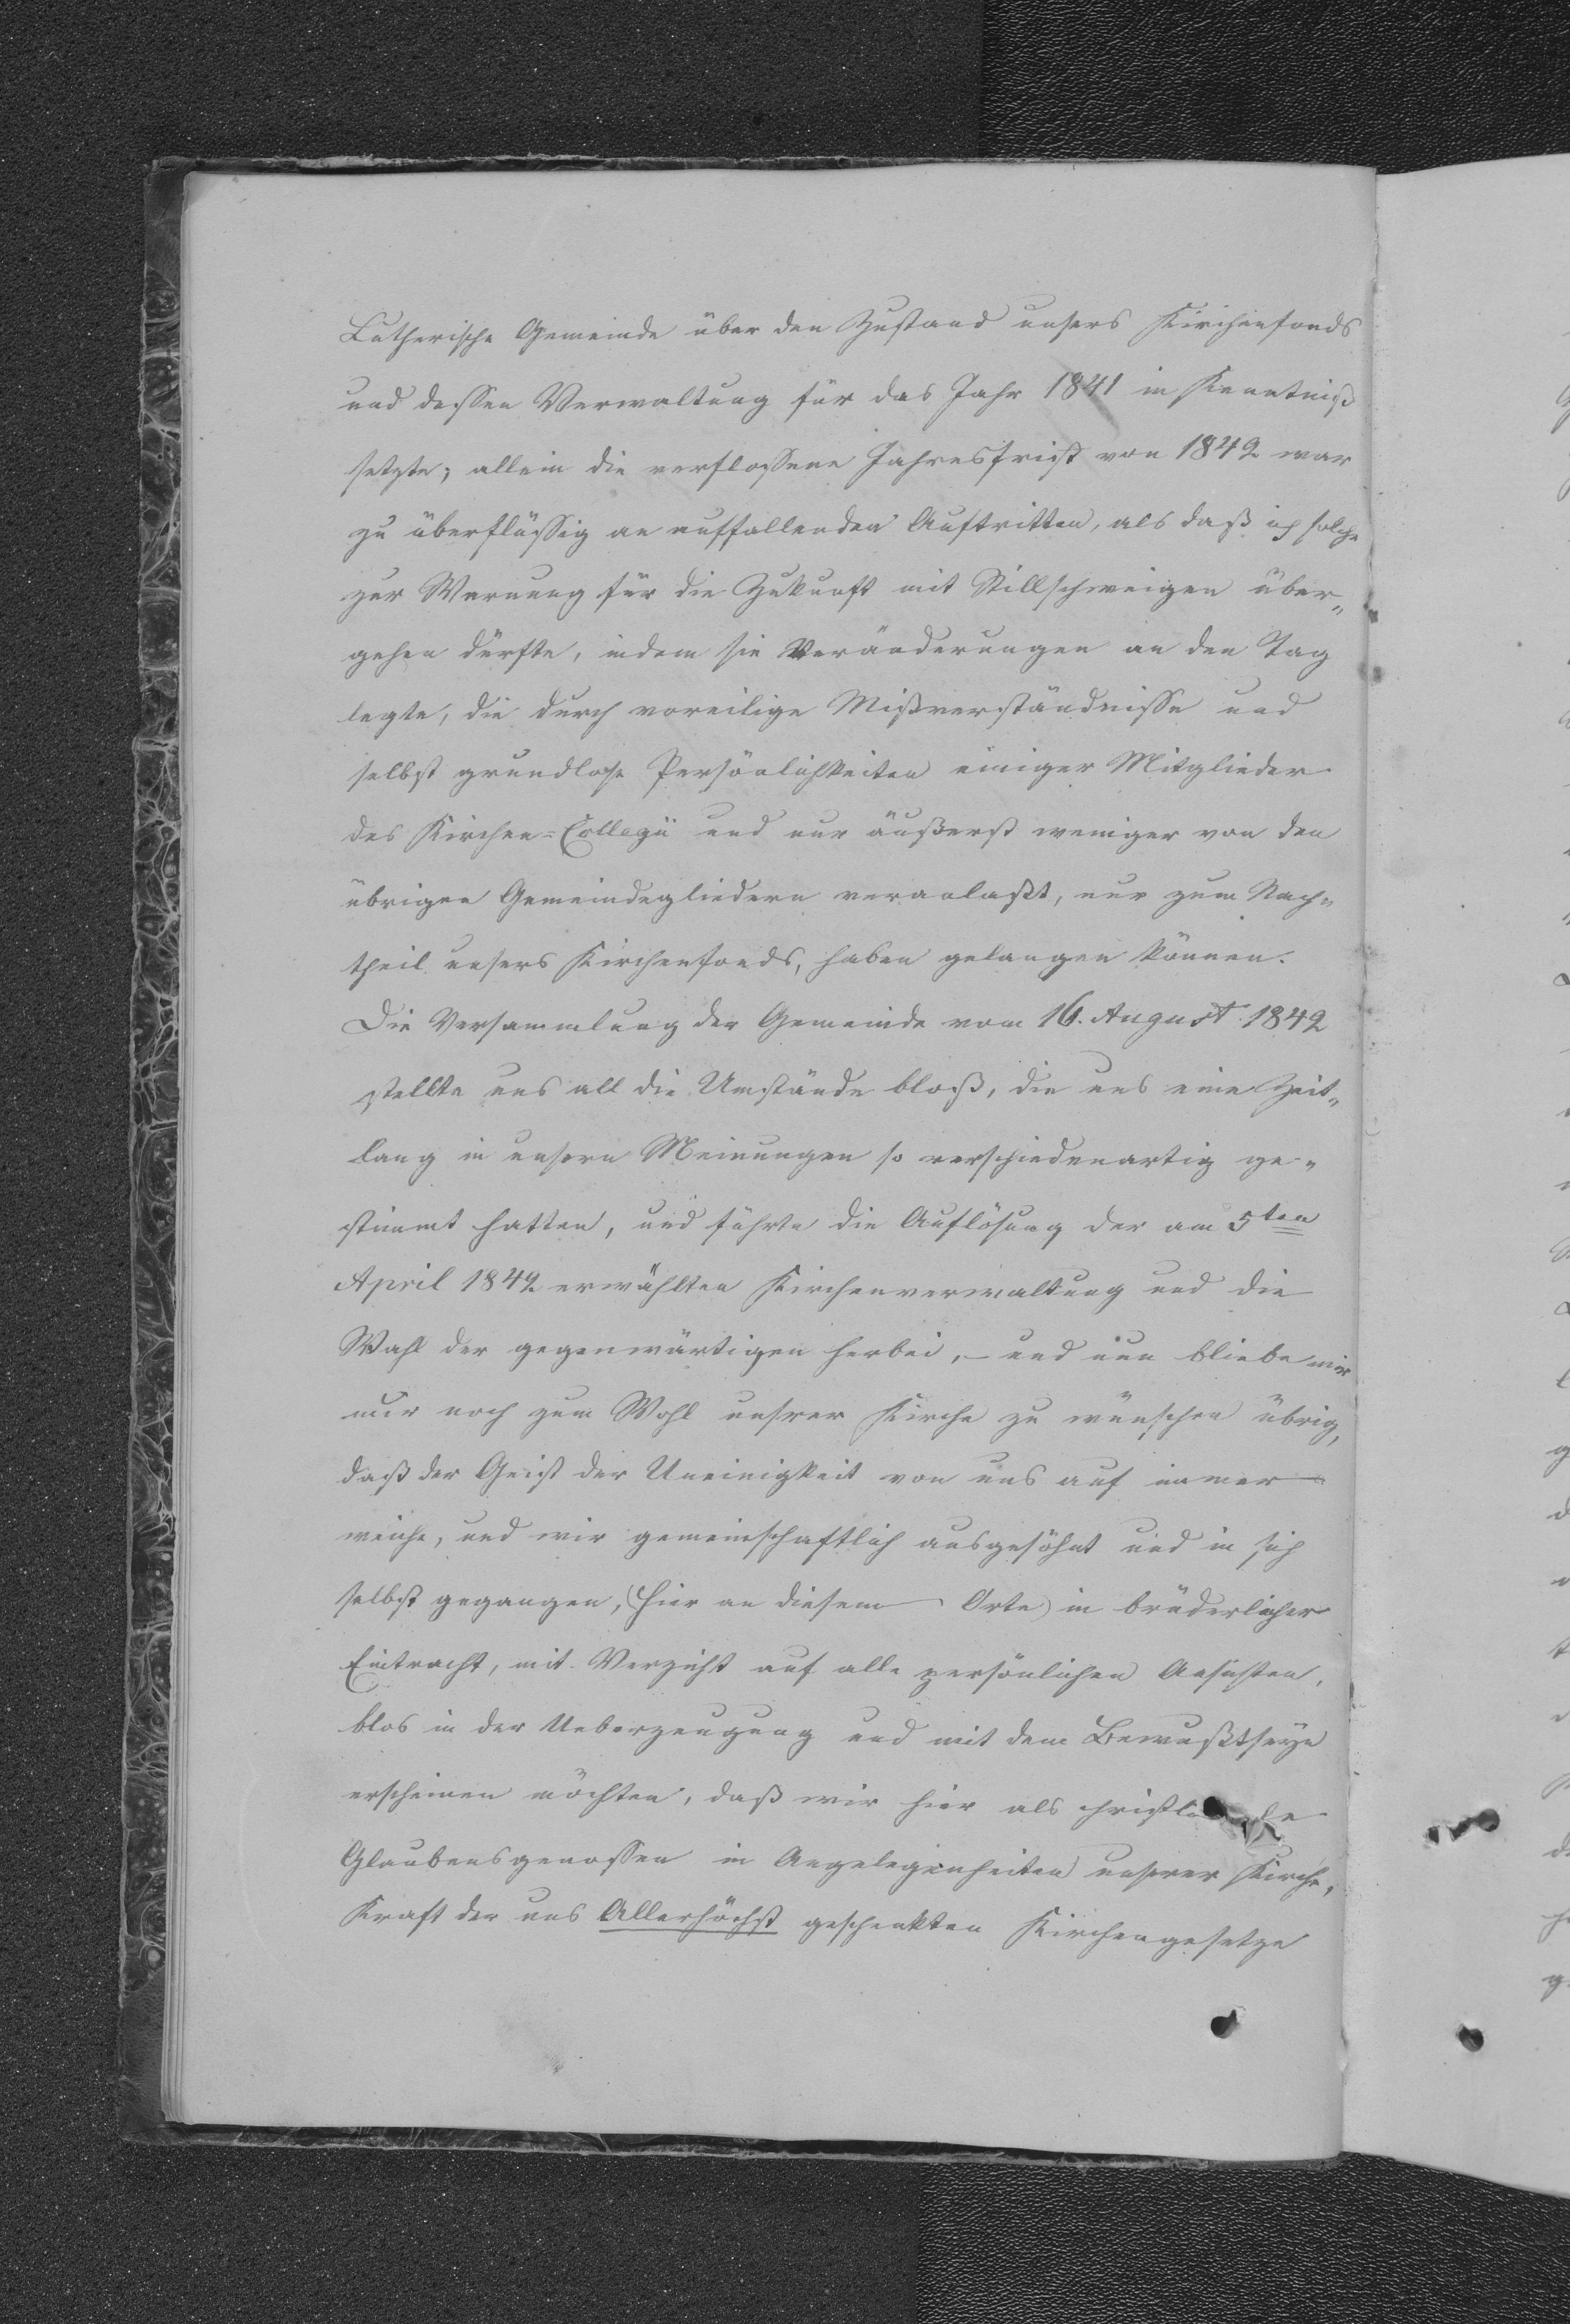 Lutherische Gemeinde über den Zustand unsers Kirchenfonds
und dessen Verwaltung für das Jahr 1841 in Kenntniß
setzte; allein die verflossene Jahresfrist von 1842 war
zu überflüssig an auffallenden Auftritten, als daß ich solche
zur Warnung für die Zukunft mit Stillschweigen über„
gehen dürfte, indem sie Veränderungen an den Tag
legte, die durch voreilige Mißverständnisse und
selbst grundlose Persönlichkeiten einiger Mitglieder
des Kirchen=Collegii und nur äußerst weniger von den
übrigen Gemeindegliedern veranlaßt, nur zum Nach„
theil unsers Kirchenfonds, haben gelangen können.
Die Versammlung der Gemeinde vom 16. August 1842
stellte uns all die Umstände bloß, die uns eine Zeit„
lang in unsern Meinungen so verschiedenartig ge„
stimmt hatten, und führte die Auflösung der am 5ten
April 1842 erwählten Kirchenverwaltung und die
Wahl der gegenwärtigen herbei, – und nun bliebe mir
nur noch zum Wohl unsrer Kirche zu wünschen übrig,
daß der Geist der Uneinigkeit von uns auf immer
weiche, und wir gemeinschaftlich ausgesöhnt und in sich
selbst gegangen, (hier an diesem Orte) in brüderlicher
Eintracht, mit Verzicht auf alle persönlichen Ansichten,
blos in der Ueberzeugung und mit dem Bewußtseyn
erscheinen möchten, daß wir hier als
Glaubensgenossen in Angelegenheiten unserer Kirche,
Kraft der uns Allerhöchst geschenkten Kirchengesetze